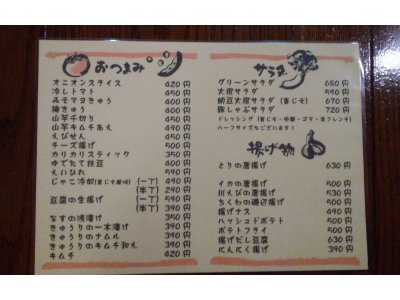 おつまみ
オニオンスライス 420円
冷しトマト 450円
みそマヨきゅう 400円
梅きゅう 400円
山芋千切り 450円
山芋キムチあえ 490円
えびせん 350円
チーズ揚げ 500円
カリカリスティック 350円
ゆでたて枝豆 500円
えいひれ 590円
じゃこ冷奴 (一丁) 490円
(半丁) 290円
豆腐の生揚げ (一丁) 590円
(半丁) 390円
なすの浅漬け 350円
きゅうりの一本漬け 390円
きゅうりのナムル 390円
きゅうりのキムチ和え 390円
キムチ 420円
サラダ
グリーンサラダ 680円
大根サラダ 590円
納豆大根サラダ (青じそ) 670円
豚しゃぶサラダ 720円
ドレッシング (青じそ・中華・ゴマ・白フレンチ)
ハーフサイズもございます!
揚げ物
とりの唐揚げ 630円
イカの唐揚げ 530円
川えびの唐揚げ 530円
ちくわの磯辺揚げ 500円
揚げナス 490円
ハッシュドポテト 500円
ポテトフライ 500円
揚げだし豆腐 630円
にんにく揚げ 390円